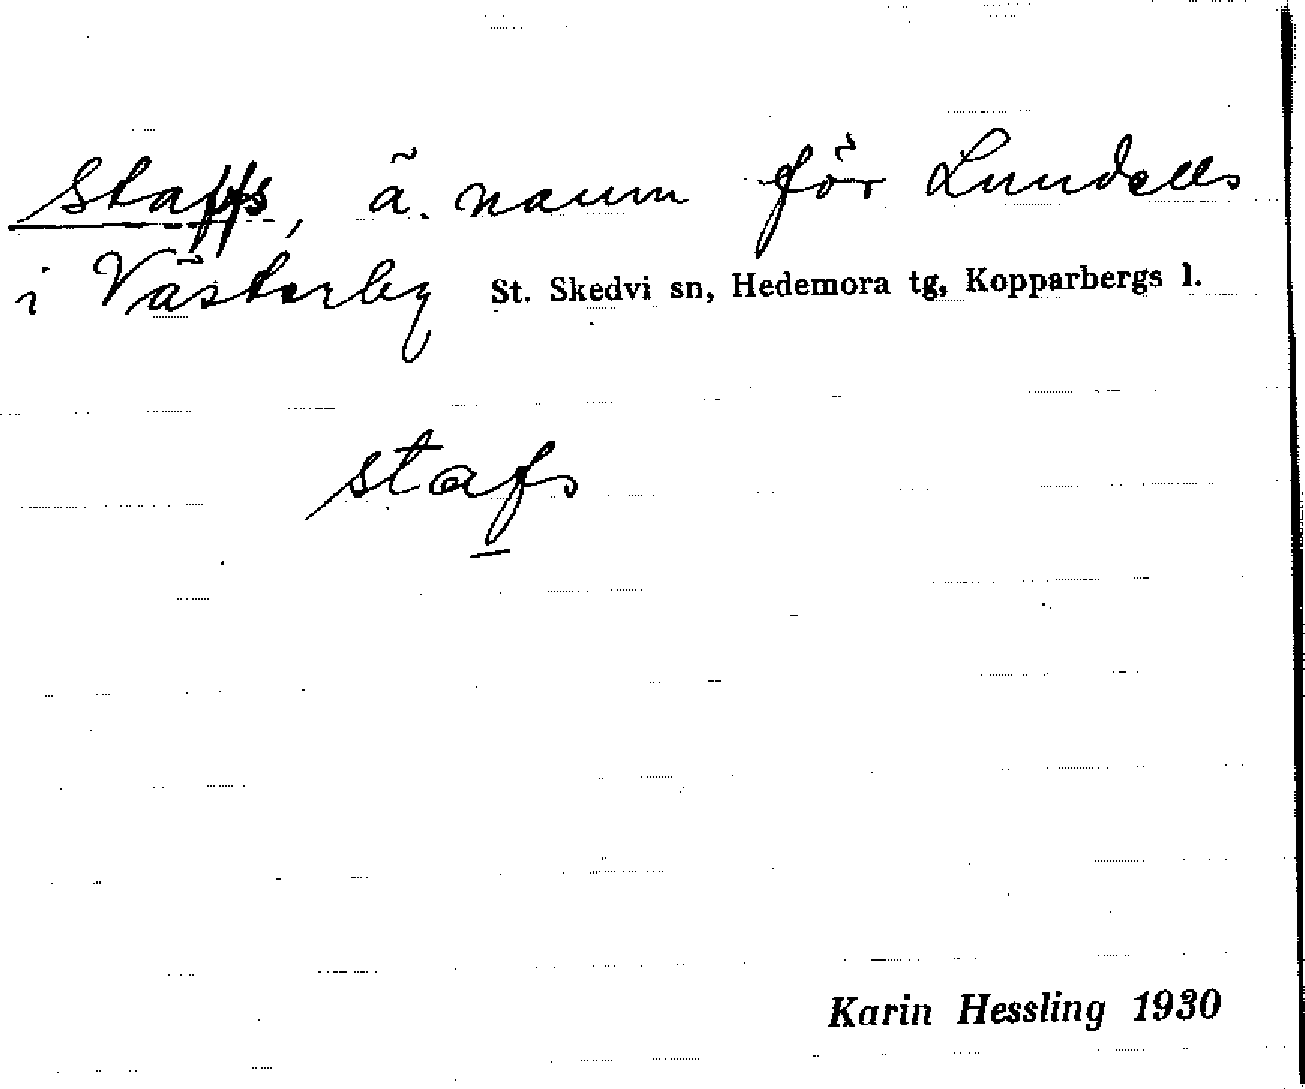 Staffs, ä. namn för Lundells
i Västerby St. Skedvi sn, Hedemora tg, Kopparbergs l.
stafs
Karin Hessling 1930